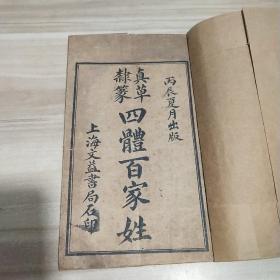 丙辰夏月出版
真草
隸篆
四體百家姓
上海文益書局石印